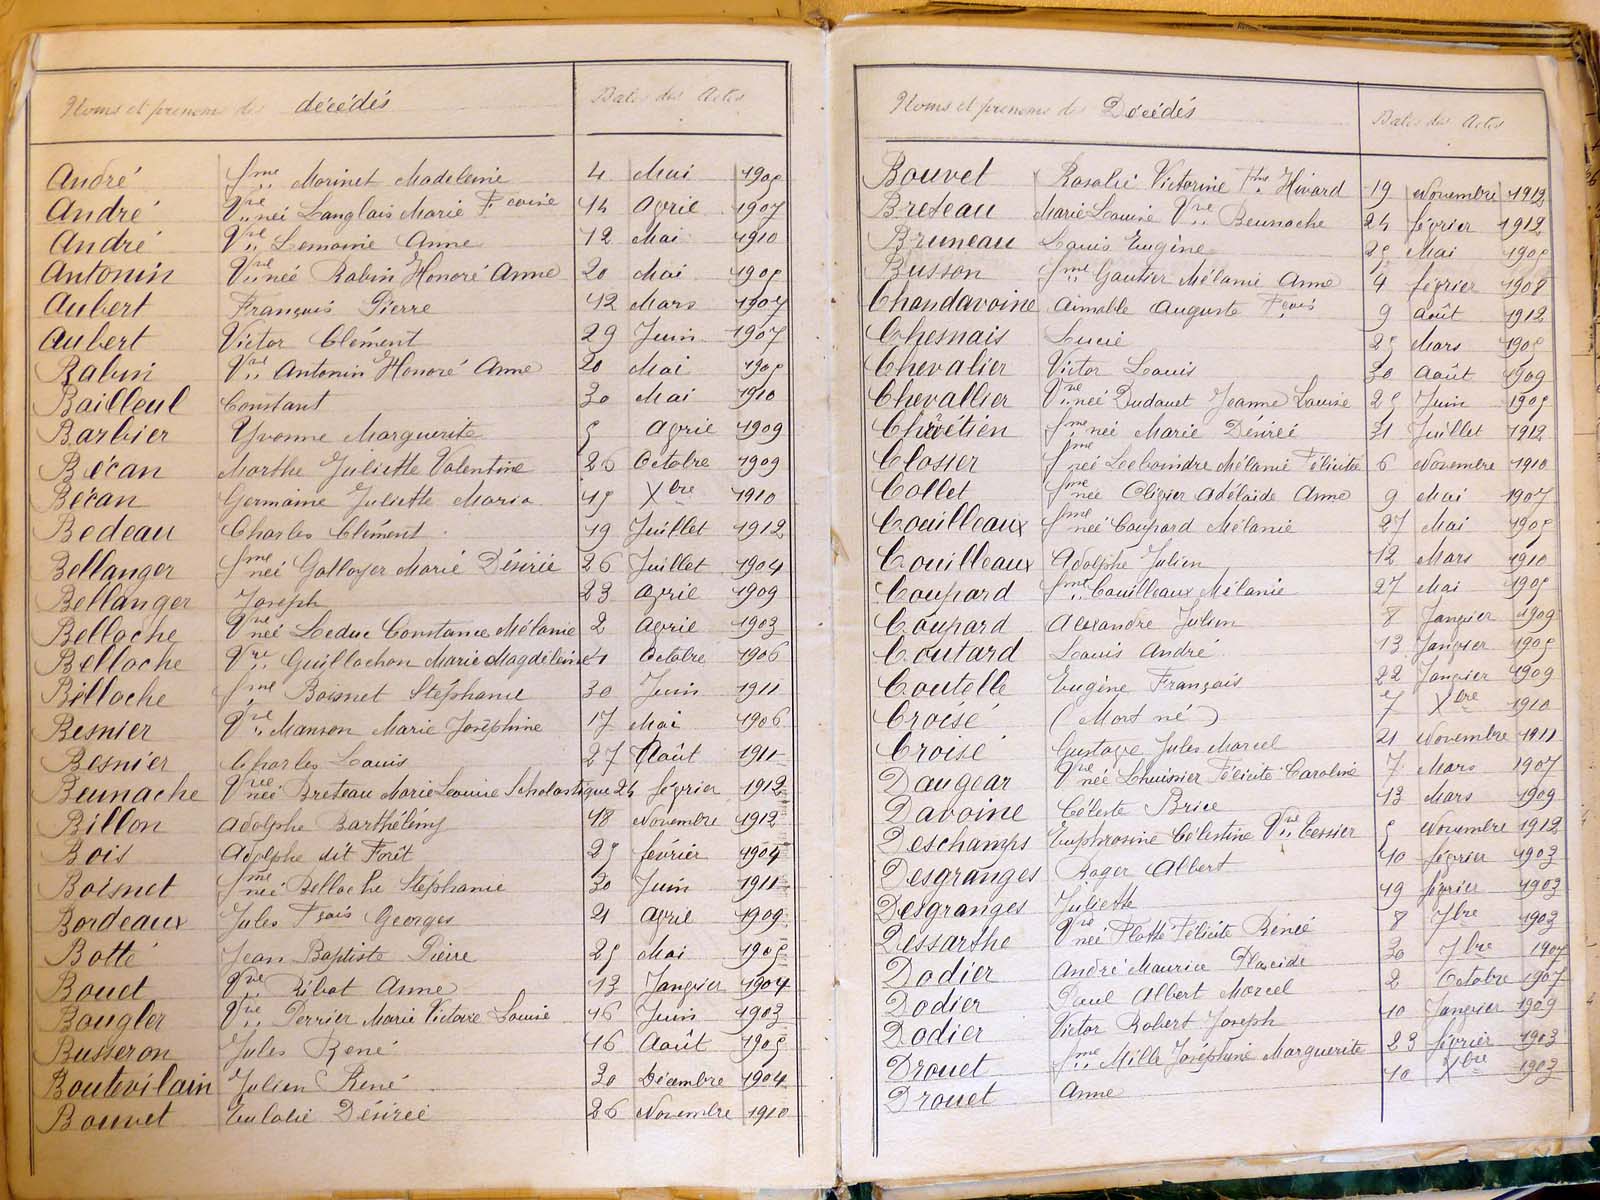 Noms et prénoms des décédés Dates des Actes
André fme Morinet Madeleine 4 Mai 1905
André Vve née Langlais Marie Fcoise 14 Avril 1907
André Vve Lemoine Anne 12 Mai 1910
Antonin Vve née Rabin Honoré Anne 20 Mai 1905
Aubert François Pierre 12 Mars 1907
Aubert Victor Clément 29 Juin 1907
Rabin Vve Antonin Honoré Anne 20 Mai 1905
Bailleul Constant 30 Mai 1910
Barbier Yvonne Marguerite 5 Avril 1909
Bécan Marthe Juliette Valentine 26 Octobre 1909
Bécan Germaine Juliette Maria 15 Xbre 1910
Bedeau Charles Clément 19 Juillet 1912
Bellanger fme née Galloyer Marie Désirée 26 Juillet 1904
Bellanger Joseph 23 Avril 1909
Belloche Vve née Leduc Constance Mélanie 2 Avril 1903
Belloche Vve Guillochon Marie Magdeleine 4 Octobre 1906
Belloche fme Boisnet Stéphanie 30 Juin 1911
Besnier Vve Manson Marie Joséphine 17 Mai 1906
Besnier Charles Louis 27 Août 1911
Beunache Vve née Breteau Marie Louise Scholastique 24 février 1912
Billon Adolphe Barthélémy 18 Novembre 1912
Bois Adolphe dit Forêt 25 février 1904
Boisnet fme née Belloche Stéphanie 30 Juin 1911
Bordeaux Jules Fçois Georges 21 Avril 1909
Botté Jean Baptiste Pierre 25 Mai 1905
Bouet Vve Ribot Anne 13 Janvier 1904
Bougler Vve Perrier Marie Victoire Louise 16 Juin 1903
Busseron Jules René 16 Août 1905
Boutevilain Julien René 30 Décembre 1904
Bouvet Eulalie Désirée 26 Novembre 1910
Noms et prénoms des Décédés Dates des Actes
Bouvet Rosalie Victorine fme Hivard 19 Novembre 1912
Breteau Marie Louise Vve Beunache 24 février 1912
Bruneau Louis Eugène 25 Mai 1905
Busson fme Gautier Mélanie Anne 4 février 1908
Chandavoine Aimable Auguste Fçois 9 Août 1912
Chesnais Lucie 25 Mars 1905
Chevalier Victor Louis 30 Août 1909
Chevallier Vve née Dudouet Jeanne Louise 25 Juin 1905
Chrétien fme née Marie Désirée 31 Juillet 1912
Closier fme née Leboindre Mélanie Félicité 6 Novembre 1910
Collet fme née Olivier Adélaïde Anne 9 Mai 1907
Couilleaux fme née Coupard Mélanie 27 Mai 1905
Couilleaux Adolphe Julien 12 Mars 1910
Coupard fme Couilleaux Mélanie 27 Mai 1905
Coupard Alexandre Julien 8 Janvier 1909
Coutard Louis André 13 Janvier 1905
Coutelle Eugène François 22 Janvier 1909
Croisé (Mort né) 7 Xbre 1910
Croisé Gustave Jules Marcel 21 Novembre 1911
Daugear Vve née Lhuissier Félicité Caroline 7 Mars 1907
Davoine Céleste Brice 13 Mars 1909
Deschamps Euphrosine Célestine Vve Tessier 5 Novembre 1912
Desgranges Roger Albert 10 février 1903
Desgranges Juliette 19 février 1903
Dessarthe Vve née Flotté Félicité Renée 8 7bre 1903
Dodier André Maurice Placide 30 7bre 1907
Dodier Paul Albert Marcel 2 Octobre 1907
Dodier Victor Robert Joseph 10 Janvier 1909
Drouet fme Mille Joséphine Marguerite 23 février 1903
Drouet Anne 10 Xbre 1903